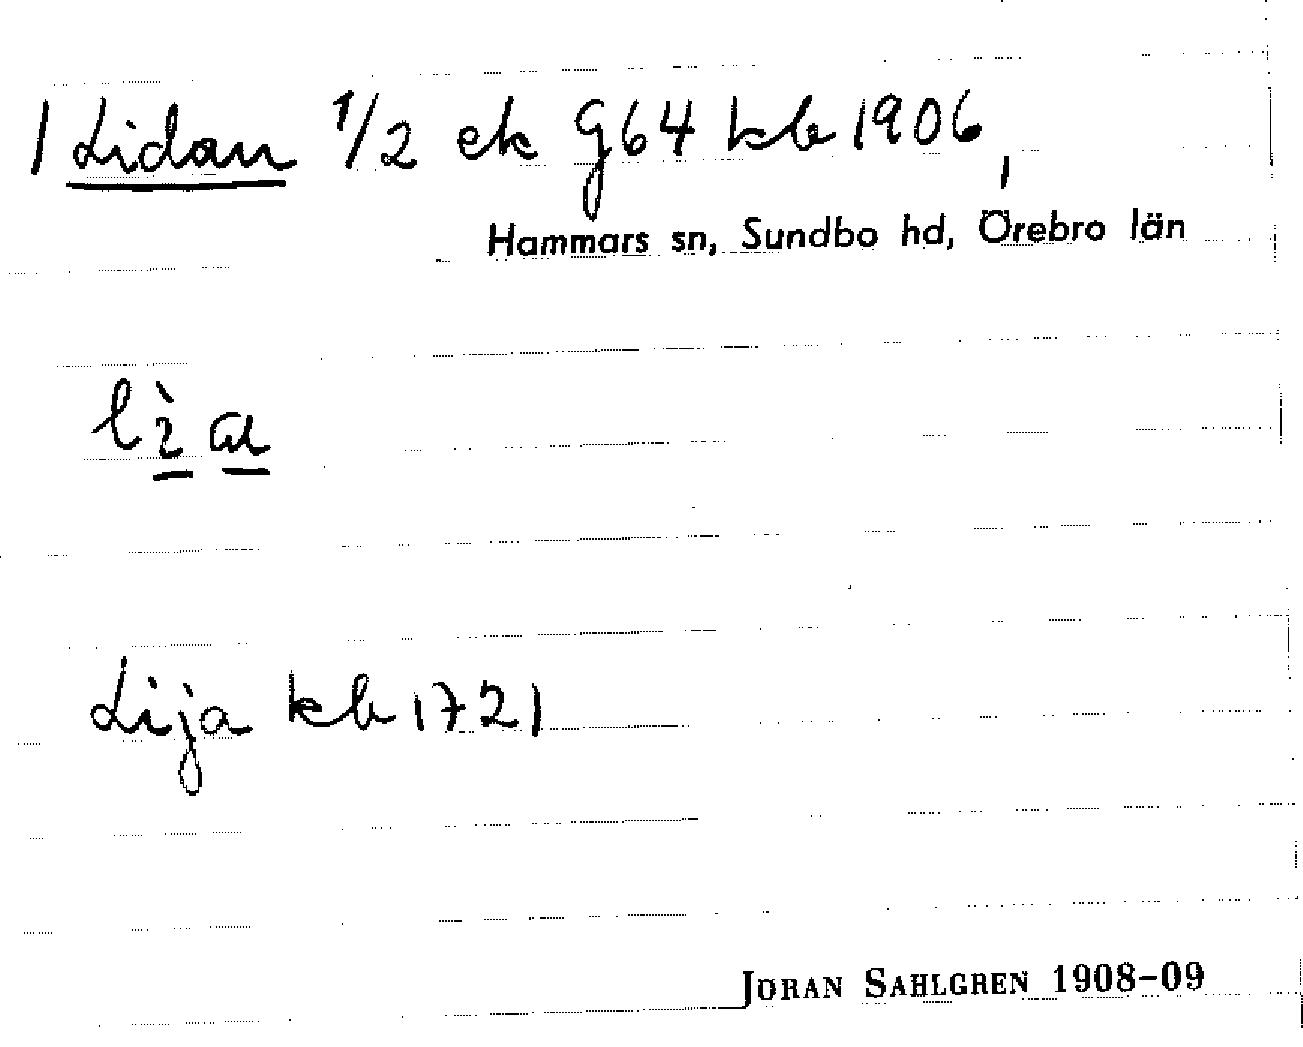 1 Lidan 1/2 ek G64 kb 1906,
Hammars sn, Sundbo hd, Örebro län
lì a
Lija kb 1721
JÖRAN SAHLGREN 1908-09